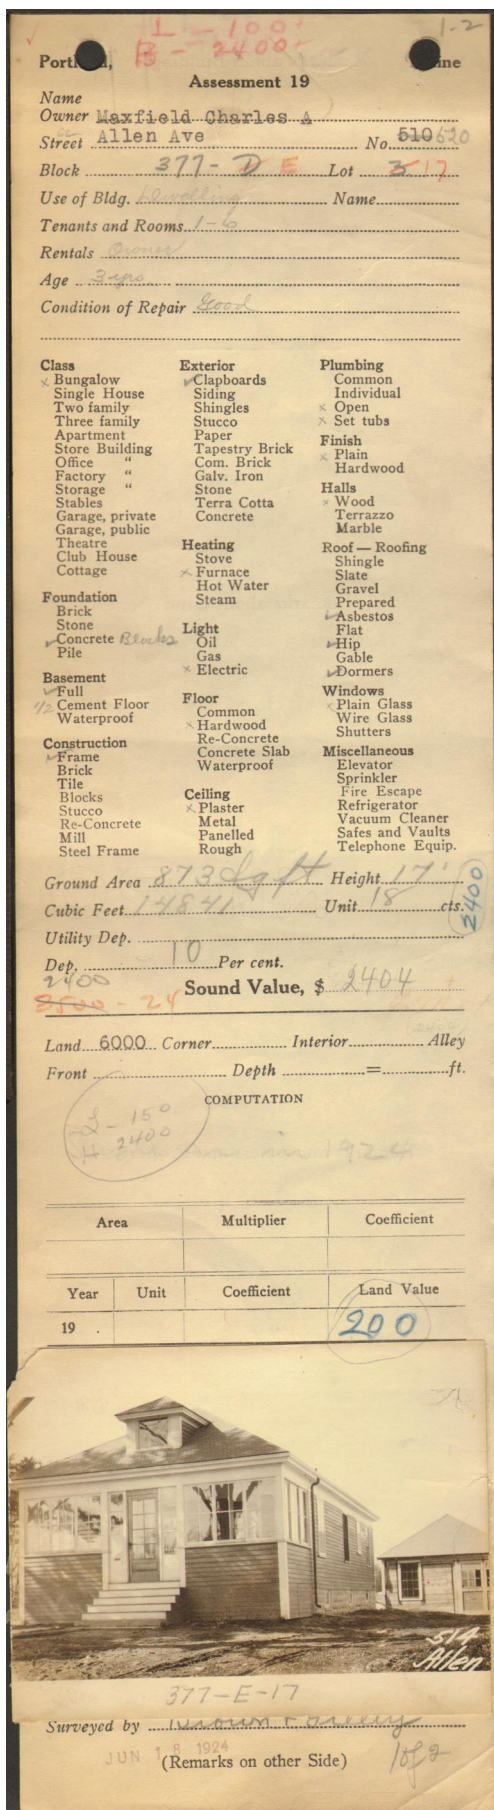 L - 100
1-2
B - 2400
Portland, Maine
Assessment 19
Name
Owner Maxfield Charles A
Street Allen Ave No. 510 620
Block 377- D E Lot 3 17
Use of Bldg. Dwelling Name
Tenants and Rooms 1-6
Rentals Owner
Age 3 yrs.
Condition of Repair Good
Class
x Bungalow
Single House
Two family
Three family
Apartment
Store Building
Office "
Factory "
Storage "
Stables
Garage, private
Garage, public
Theatre
Club House
Cottage
Foundation
Brick
Stone
✓ Concrete Blocks
Pile
Basement
✓ Full
1/2 Cement Floor
Waterproof
Construction
✓ Frame
Brick
Tile
Blocks
Stucco
Re-Concrete
Mill
Steel Frame
Exterior
✓ Clapboards
Siding
Shingles
Stucco
Paper
Tapestry Brick
Com. Brick
Galv. Iron
Stone
Terra Cotta
Concrete
Heating
Stove
x Furnace
Hot Water
Steam
Light
Oil
Gas
x Electric
Floor
Common
x Hardwood
Re-Concrete
Concrete Slab
Waterproof
Ceiling
x Plaster
Metal
Panelled
Rough
Plumbing
Common
Individual
x Open
x Set tubs
Finish
x Plain
Hardwood
Halls
x Wood
Terrazzo
Marble
Roof — Roofing
Shingle
Slate
Gravel
Prepared
✓ Asbestos
Flat
✓ Hip
Gable
✓ Dormers
Windows
x Plain Glass
Wire Glass
Shutters
Miscellaneous
Elevator
Sprinkler
Fire Escape
Refrigerator
Vacuum Cleaner
Safes and Vaults
Telephone Equip.
Ground Area 873 Sq ft Height 17'
Cubic Feet 14841 Unit 18 cts.
2400
Utility Dep.
Dep. 10 Per cent.
2400
3500 - 24
Sound Value, $ 2404
Land 6000 Corner Interior Alley
Front Depth = ft.
COMPUTATION
L - 150
H 2400
in 1924
Area Multiplier Coefficient
Year Unit Coefficient Land Value
19 . 200
514
Allen
377-E-17
Surveyed by Brown +
JUN 18 1924
(Remarks on other Side)
1 of 2